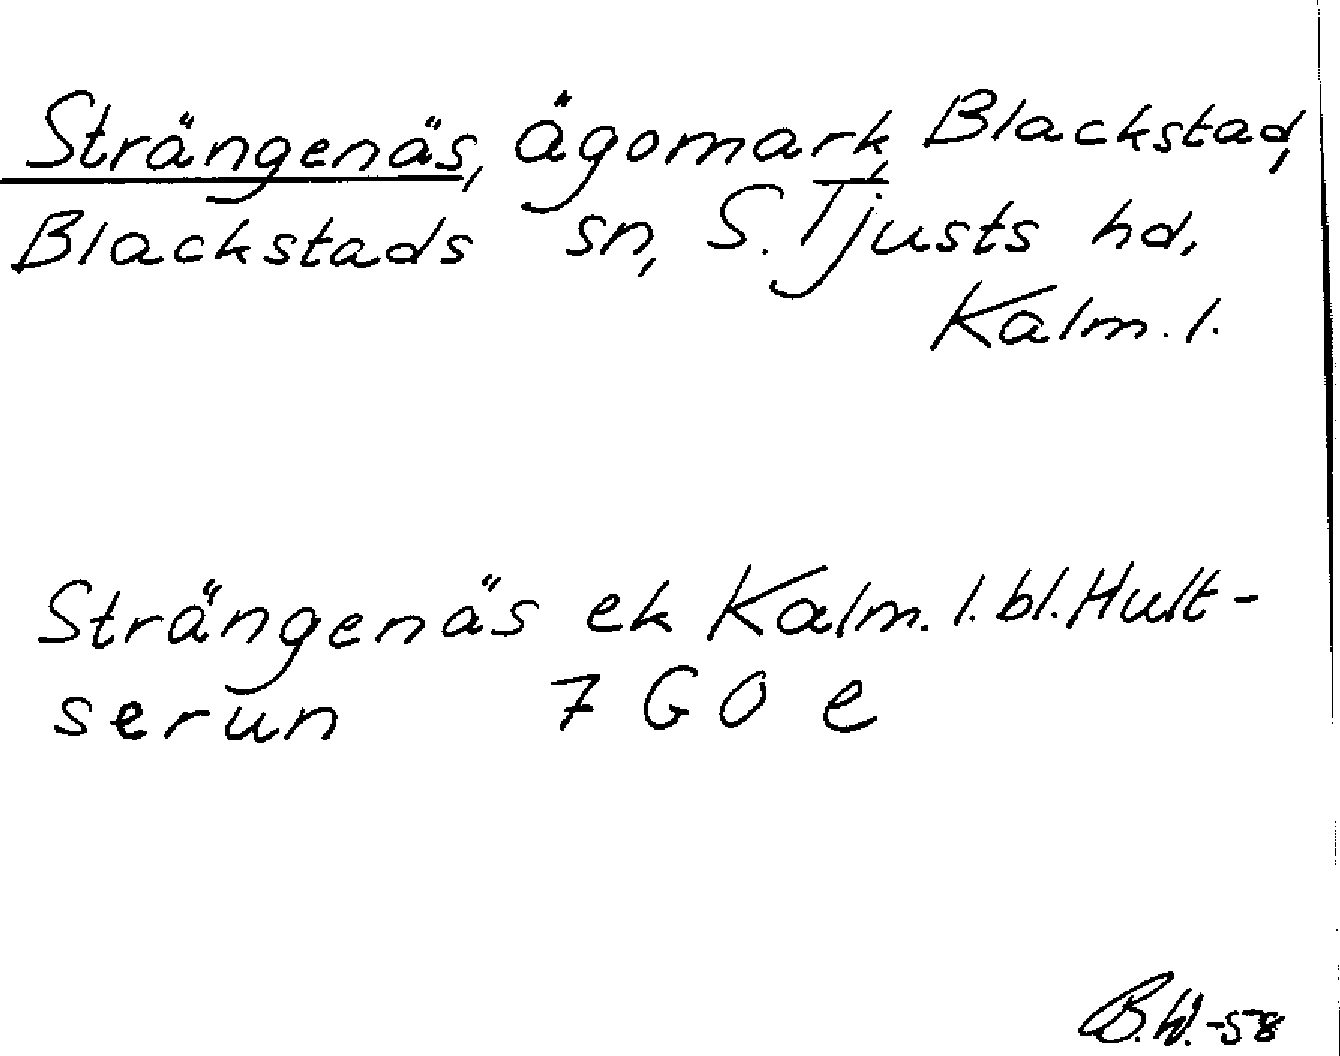 Strängenäs, ägomark, Blackstad,
Blackstads sn, S. Tjusts hd,
Kalm. l.
Strängenäs ek Kalm. l. bl. Hult-
serun 7 G O e
B.W.-58